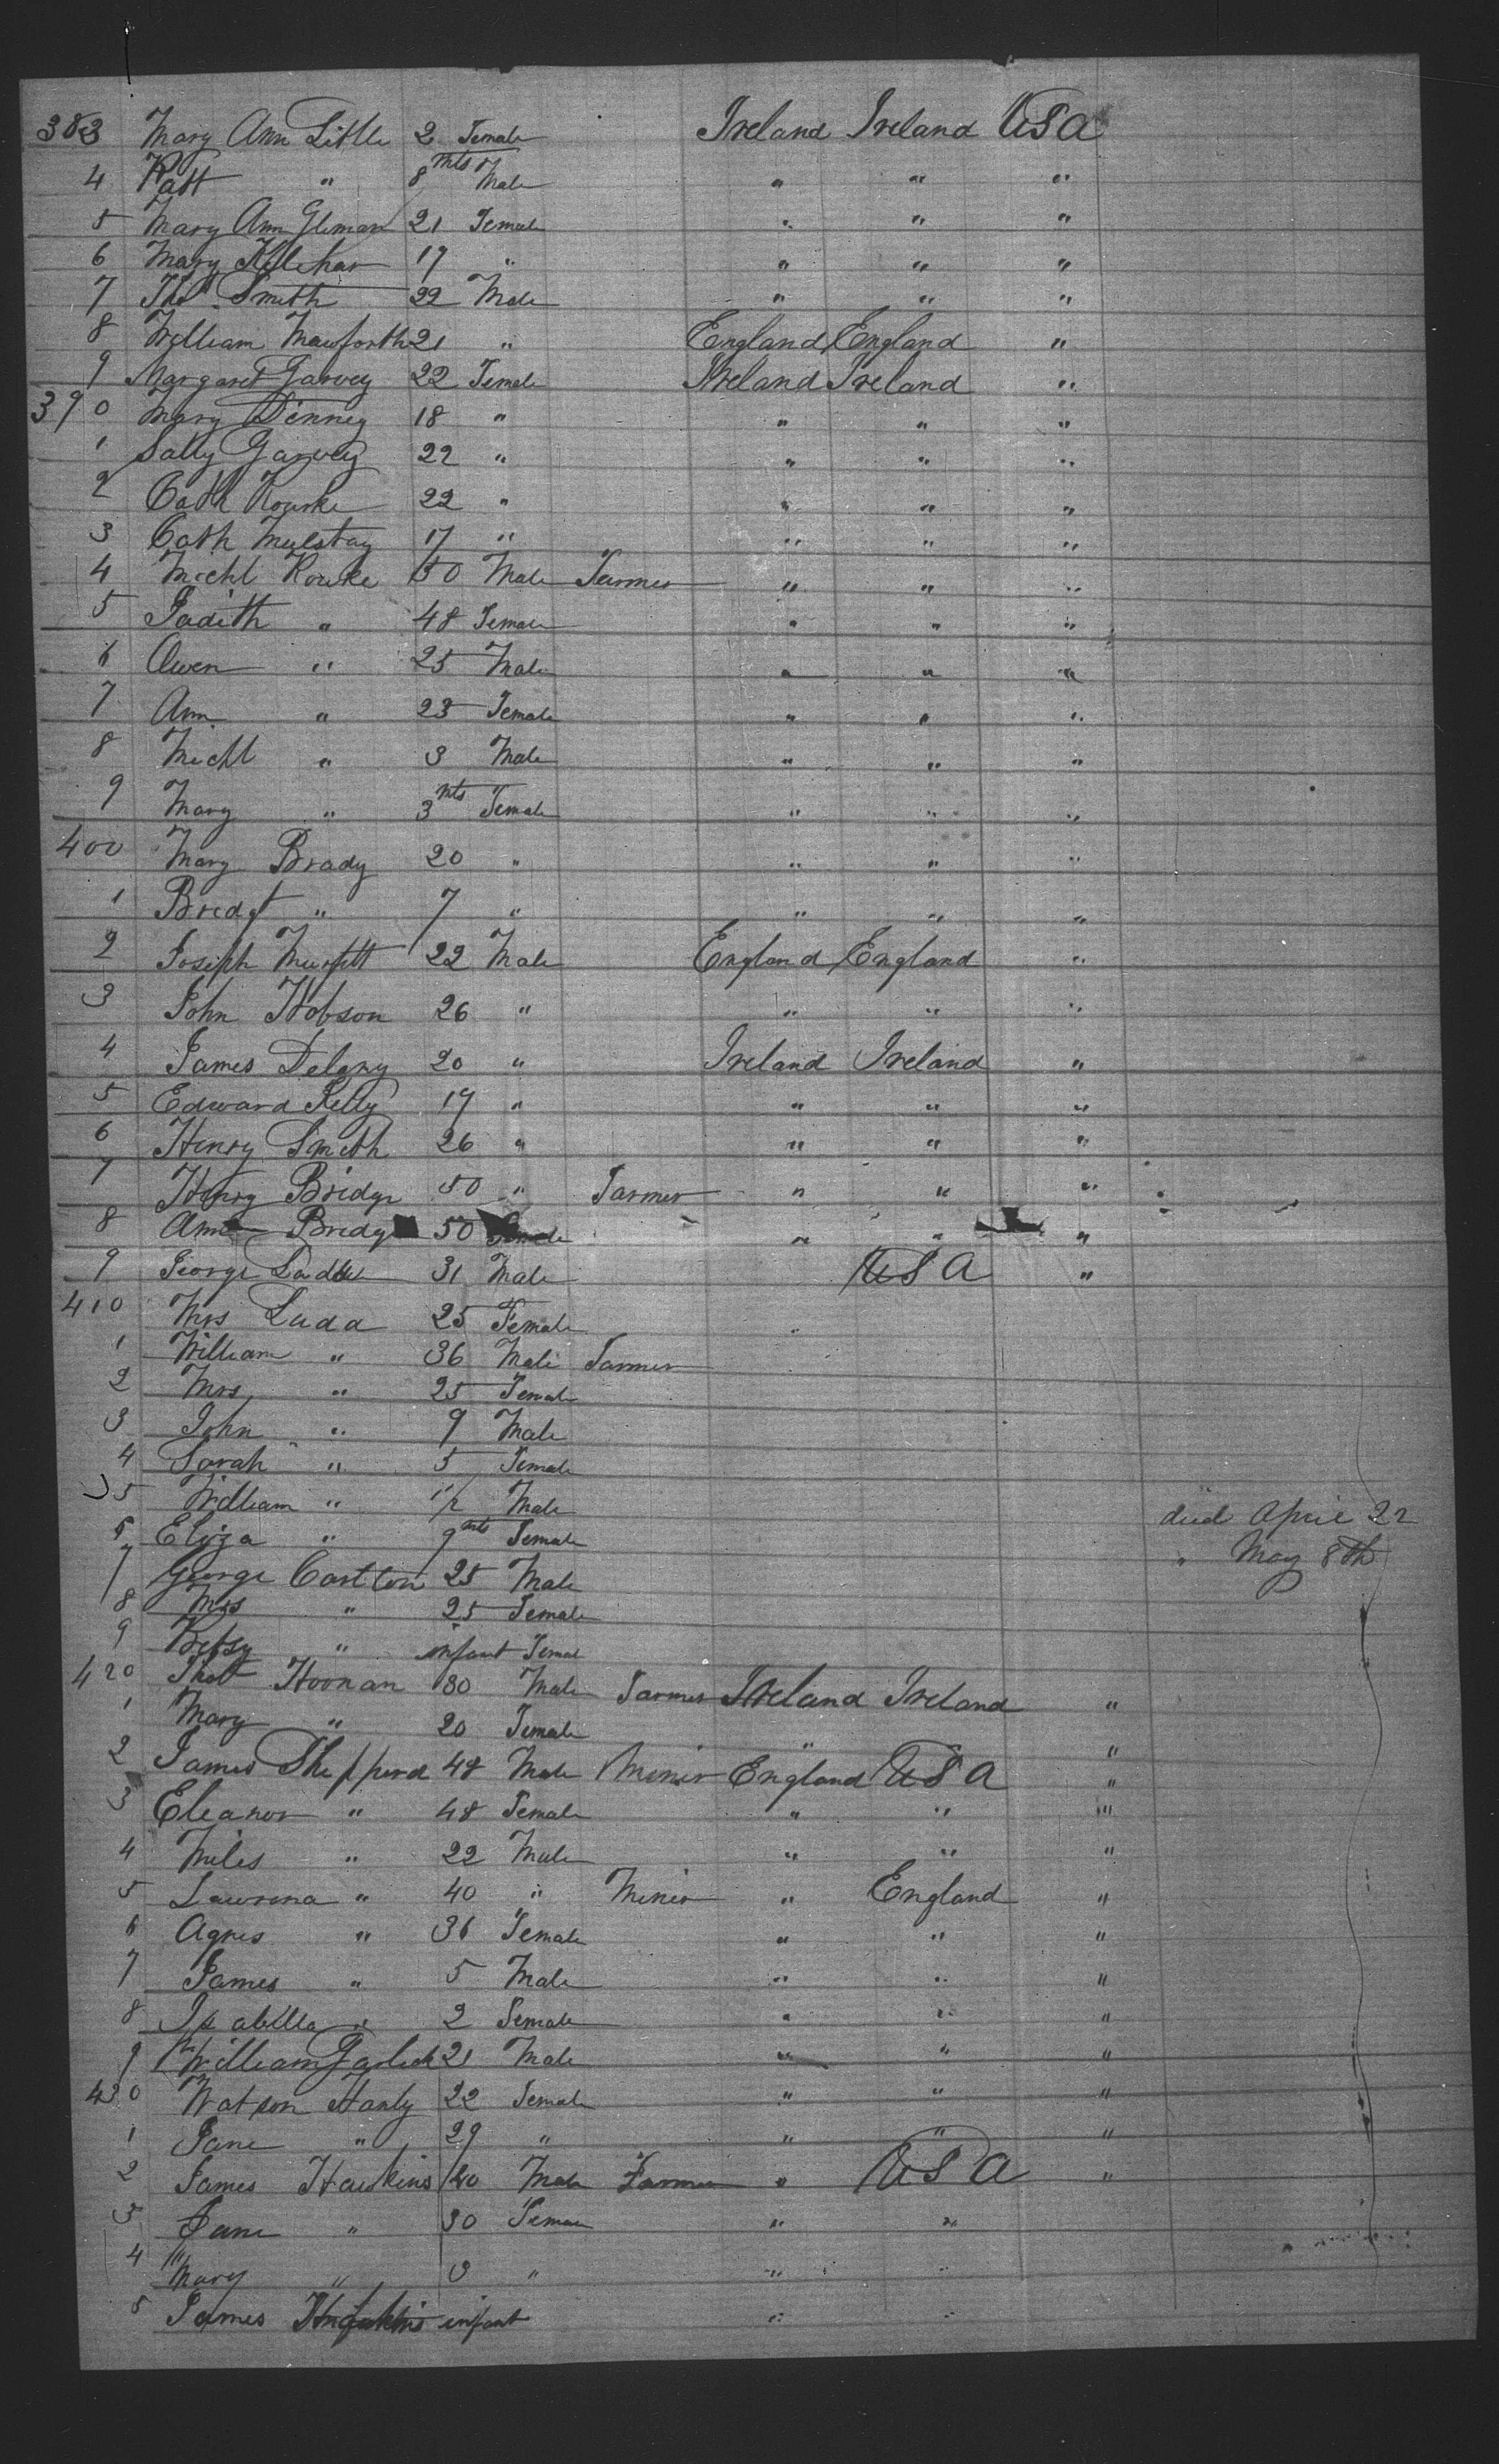 383 Mary Ann Little 2 Female Ireland Ireland USA
4 Patt " 8 mts Male " " "
5 Mary Ann 21 Female " " "
6 Mary 19 " " " "
7 Thos Smith 22 Male " " "
8 William Mawforth 21 " England England "
9 Margaret Garvey 22 Female Ireland Ireland "
390 Mary Denney 18 " " " "
1 Sally Garvey 22 " " " "
2 Cath Rourke 22 " " " "
3 Cath 17 " " " "
4 Michl Rourke 50 Male Farmer " " "
5 Judith " 48 Female " " "
6 Owen " 25 Male " " "
7 Ann " 23 Female " " "
8 Michl " 3 Male " " "
9 Mary " 3 mts Female " " "
400 Mary Brady 20 " " " "
1 Bredgt " 7 " " " "
2 Joseph 22 Male England England "
3 John Hobson 26 " " " "
4 James Delany 20 " Ireland Ireland "
5 Edward Kelly 19 " " " "
6 Henry Smith 26 " " " "
7 Henry Bridge 50 " Farmer " " "
8 Ann Bredge 50 Female " " "
9 George 31 Male USA "
410 Mrs Ludd 25 Female "
1 William " 36 Male Farmer
2 Mrs " 25 Female
3 John " 9 Male
4 Sarah " 5 Female
5 William " 1/2 Male died April 22
6 Eliza " 9 mts Female " May 8th
7 George Castleton 25 Male
8 Mrs " 25 Female
9 Betsy " infant Female
420 Thos Hoonan 30 Male Farmer Ireland Ireland "
1 Mary " 20 Female " "
2 James Shepperd 48 Male Miner England USA "
3 Eleanor " 48 Female " " "
4 Miles " 22 Male " " "
5 " 40 " Miner " England "
6 Agnes " 36 Female " " "
7 James " 5 Male " " "
8 Isabella " 2 Female " " "
9 William Garlick 21 Male " " "
430 Watson Hanly 22 Female " " "
1 Jane " 29 " " " "
2 James Hawkins 40 Male Farmer " USA "
3 Jane " 30 Female " "
4 Mary " 3 " " "
5 James Hawkins infant " "